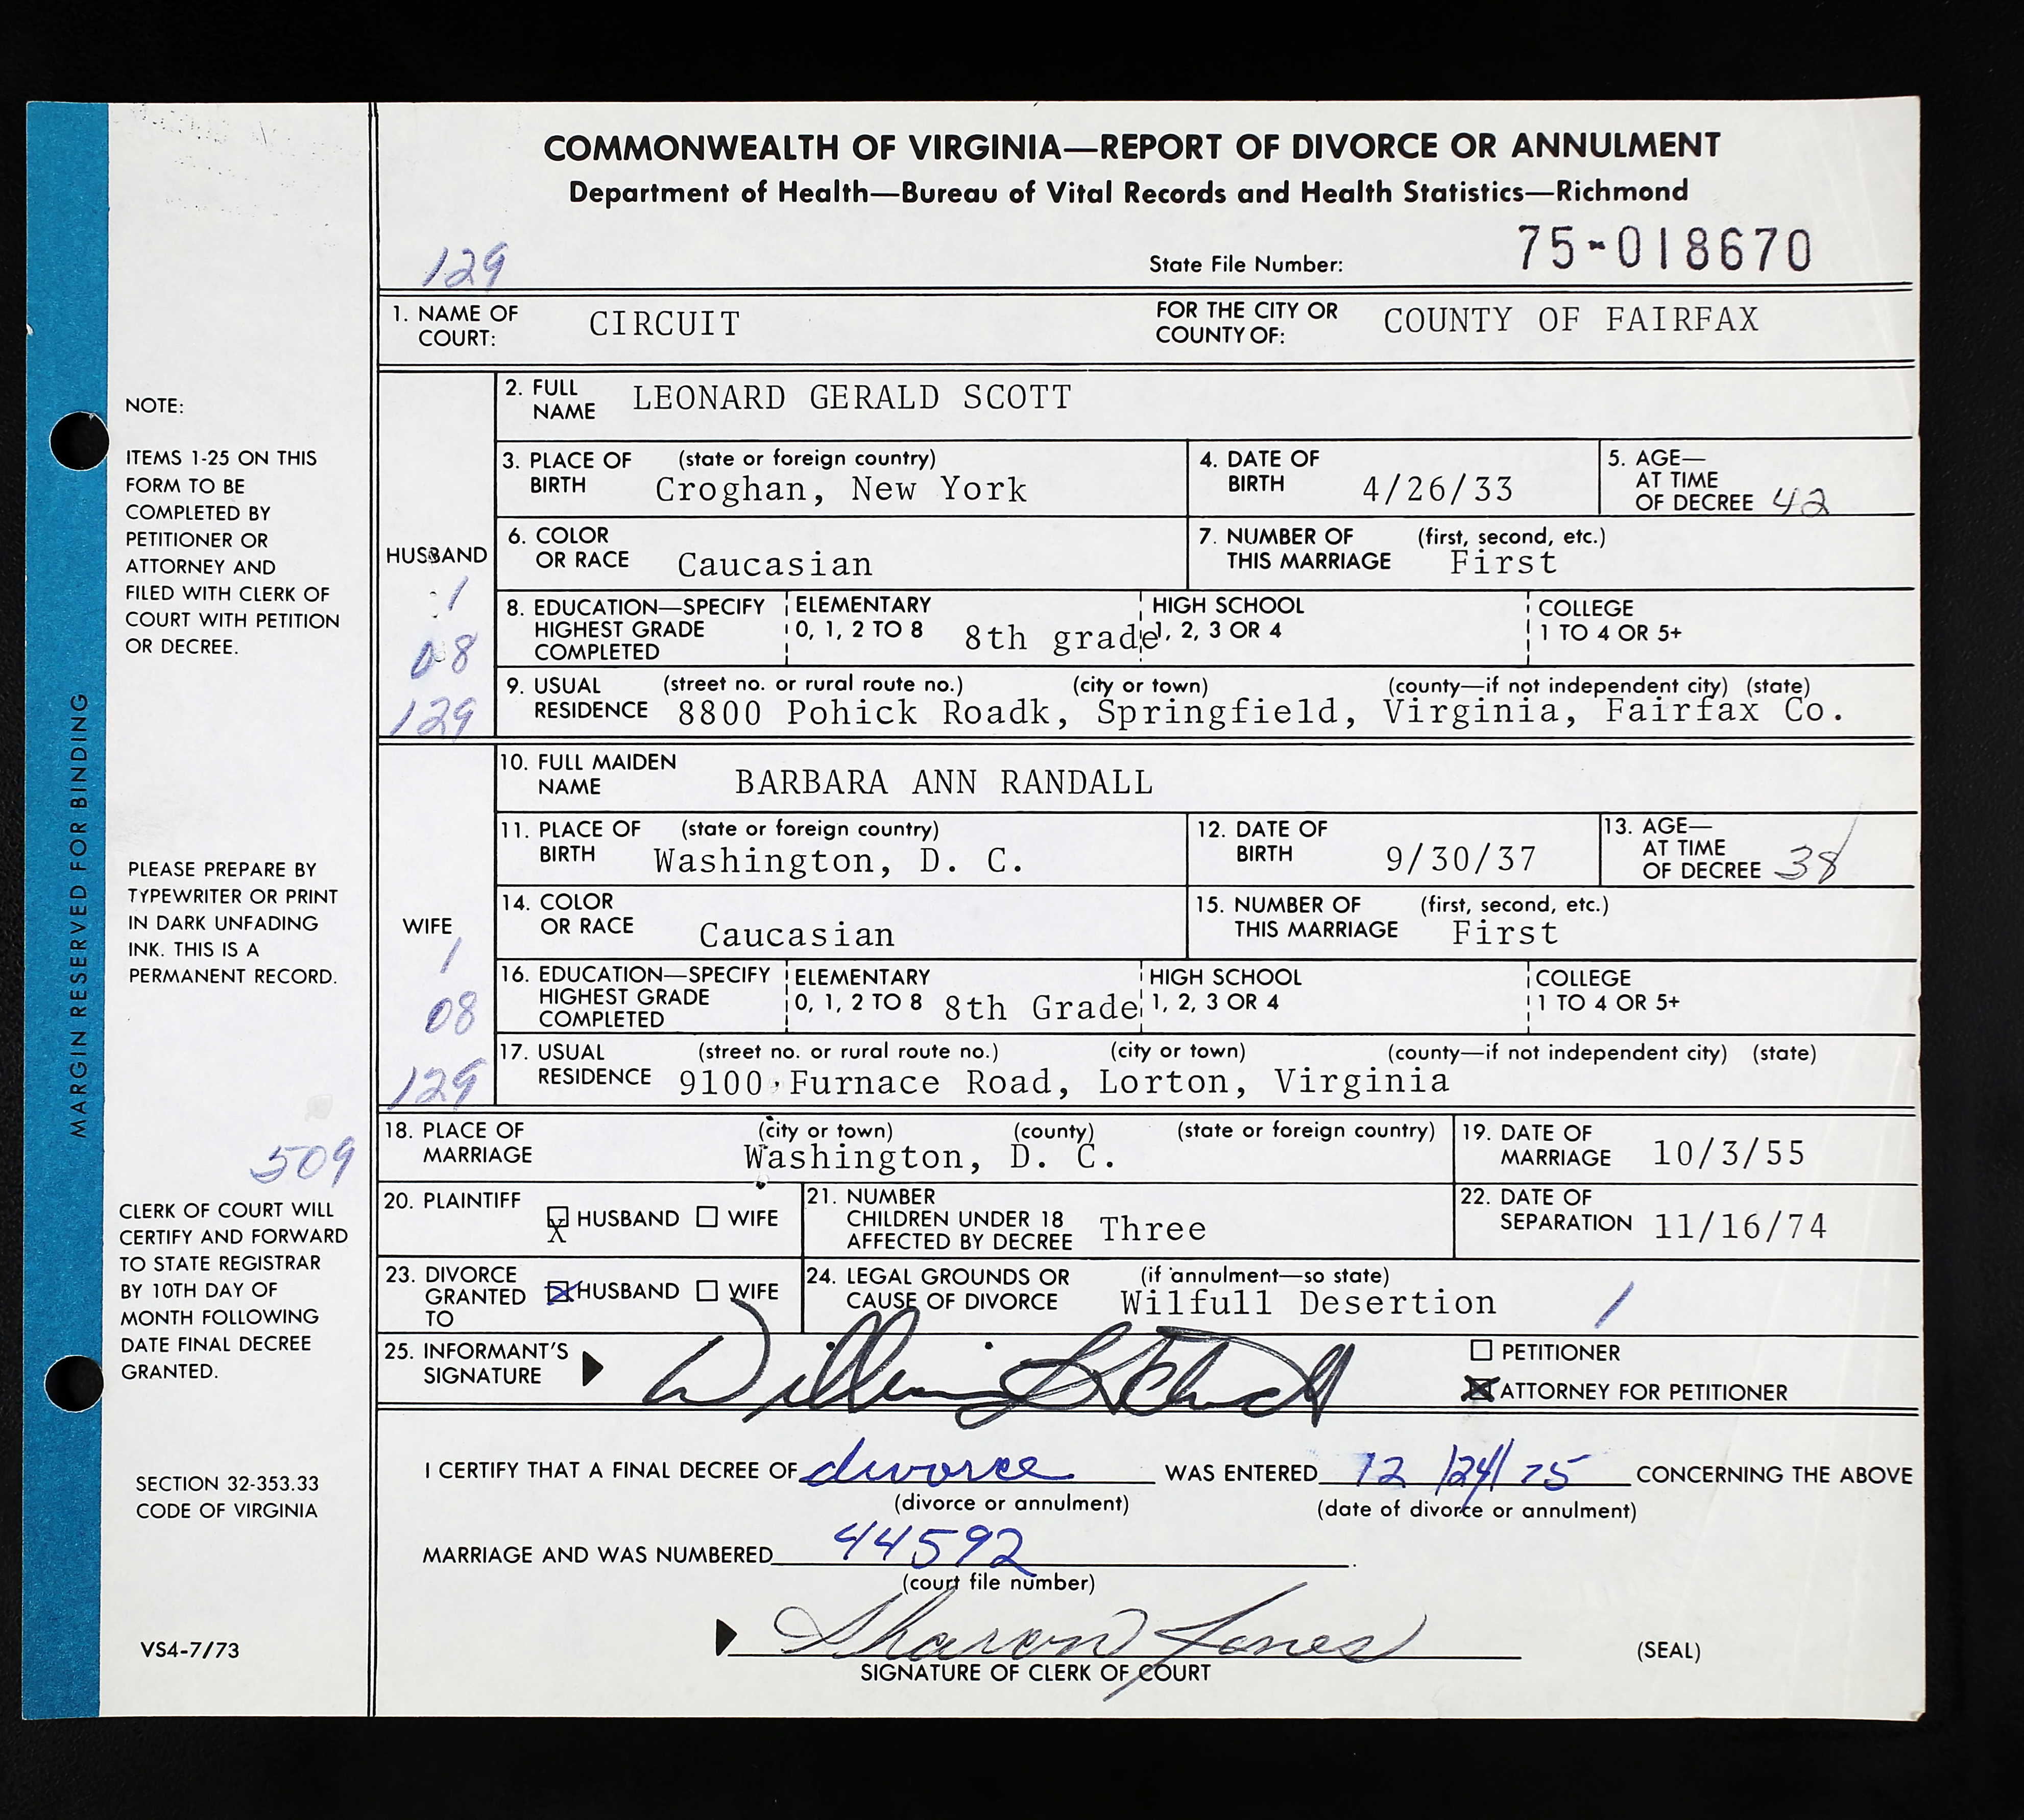 COMMONWEALTH OF VIRGINIA—REPORT OF DIVORCE OR ANNULMENT
Department of Health—Bureau of Vital Records and Health Statistics—Richmond
129
State File Number: 75-018670
1. NAME OF COURT: CIRCUIT FOR THE CITY OR COUNTY OF: COUNTY OF FAIRFAX
HUSBAND
1
08
129
2. FULL NAME LEONARD GERALD SCOTT
3. PLACE OF BIRTH (state or foreign country) Croghan, New York
4. DATE OF BIRTH 4/26/33
5. AGE—AT TIME OF DECREE 42
6. COLOR OR RACE Caucasian
7. NUMBER OF THIS MARRIAGE (first, second, etc.) First
8. EDUCATION—SPECIFY HIGHEST GRADE COMPLETED ELEMENTARY 0, 1, 2 TO 8 8th grade HIGH SCHOOL 1, 2, 3 OR 4 COLLEGE 1 TO 4 OR 5+
9. USUAL RESIDENCE (street no. or rural route no.) (city or town) (county—if not independent city) (state)
8800 Pohick Roadk, Springfield, Virginia, Fairfax Co.
WIFE
1
08
129
10. FULL MAIDEN NAME BARBARA ANN RANDALL
11. PLACE OF BIRTH (state or foreign country) Washington, D. C.
12. DATE OF BIRTH 9/30/37
13. AGE—AT TIME OF DECREE 38
14. COLOR OR RACE Caucasian
15. NUMBER OF THIS MARRIAGE (first, second, etc.) First
16. EDUCATION—SPECIFY HIGHEST GRADE COMPLETED ELEMENTARY 0, 1, 2 TO 8 8th Grade HIGH SCHOOL 1, 2, 3 OR 4 COLLEGE 1 TO 4 OR 5+
17. USUAL RESIDENCE (street no. or rural route no.) (city or town) (county—if not independent city) (state)
9100 Furnace Road, Lorton, Virginia
18. PLACE OF MARRIAGE (city or town) (county) (state or foreign country) Washington, D. C.
19. DATE OF MARRIAGE 10/3/55
20. PLAINTIFF X HUSBAND WIFE
21. NUMBER CHILDREN UNDER 18 AFFECTED BY DECREE Three
22. DATE OF SEPARATION 11/16/74
23. DIVORCE GRANTED TO X HUSBAND WIFE
24. LEGAL GROUNDS OR CAUSE OF DIVORCE (if annulment—so state) Wilfull Desertion 1
25. INFORMANT'S SIGNATURE William
PETITIONER
X ATTORNEY FOR PETITIONER
I CERTIFY THAT A FINAL DECREE OF divorce WAS ENTERED 12/24/75 CONCERNING THE ABOVE
(divorce or annulment) (date of divorce or annulment)
MARRIAGE AND WAS NUMBERED 44592.
(court file number)
Sharon Jones
SIGNATURE OF CLERK OF COURT
(SEAL)
MARGIN RESERVED FOR BINDING
NOTE:
ITEMS 1-25 ON THIS
FORM TO BE
COMPLETED BY
PETITIONER OR
ATTORNEY AND
FILED WITH CLERK OF
COURT WITH PETITION
OR DECREE.
PLEASE PREPARE BY
TYPEWRITER OR PRINT
IN DARK UNFADING
INK. THIS IS A
PERMANENT RECORD.
509
CLERK OF COURT WILL
CERTIFY AND FORWARD
TO STATE REGISTRAR
BY 10TH DAY OF
MONTH FOLLOWING
DATE FINAL DECREE
GRANTED.
SECTION 32-353.33
CODE OF VIRGINIA
VS4-7/73